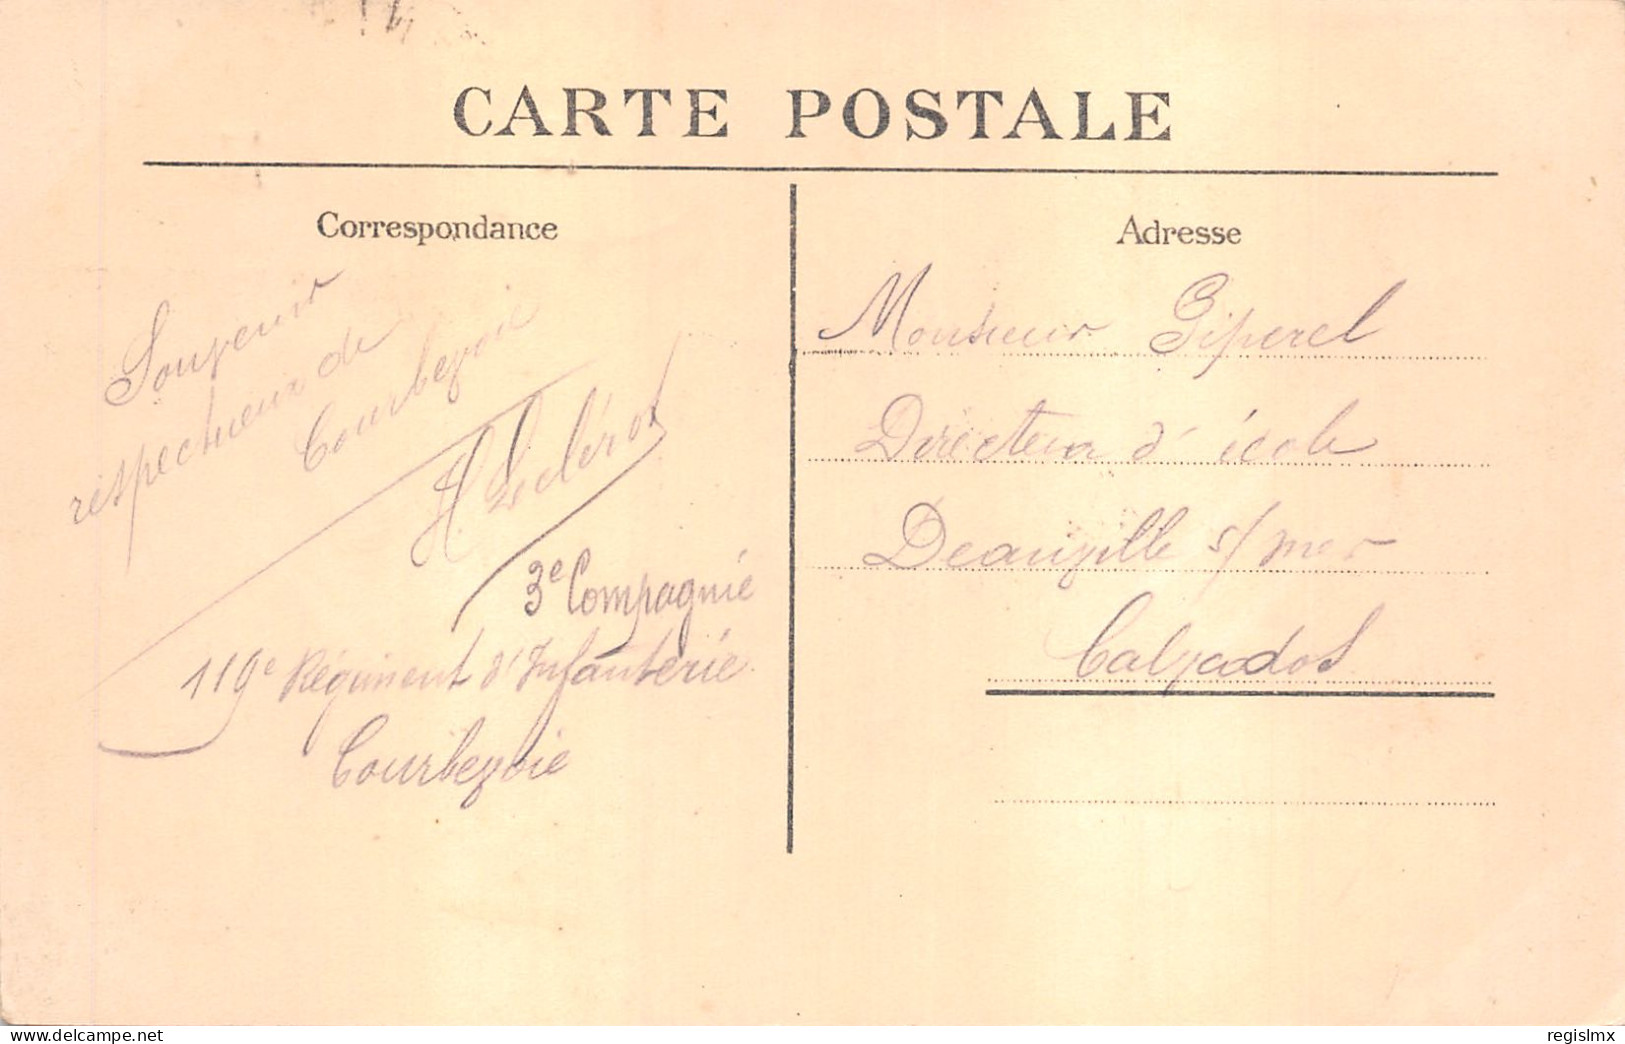 CARTE POSTALE
Correspondance
Souvenir
respectueux de
Courbevoie
H Leclérot
3e Compagnie
119e Régiment d'Infanterie
Courbevoie
Adresse
Monsieur Piperel
Directeur d'école
Deauville s/mer
Calvados
regislmx